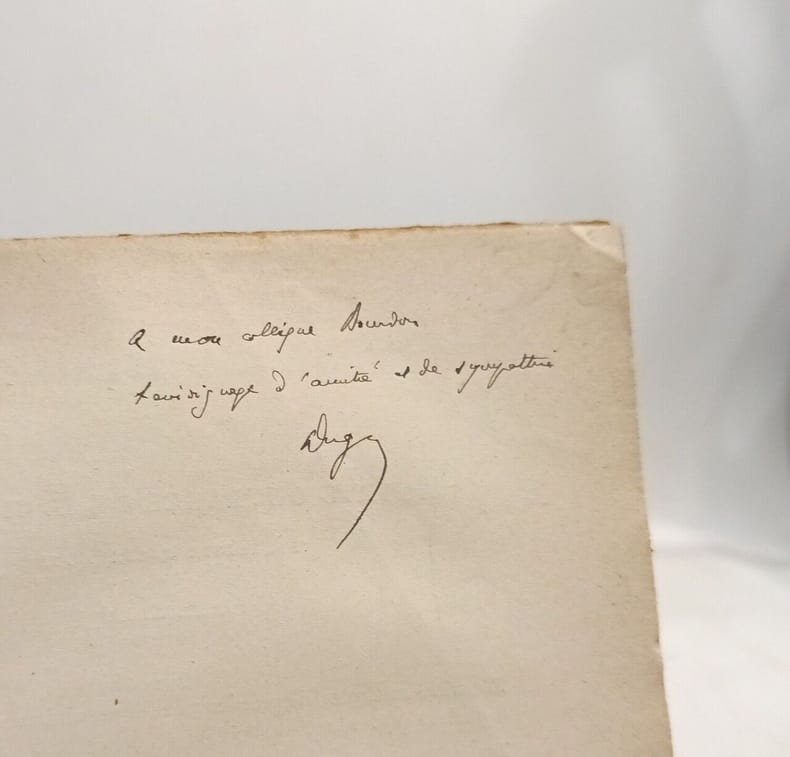 A mon collègue Bourdon
témoignage d'amitié et de sympathie
Dugas